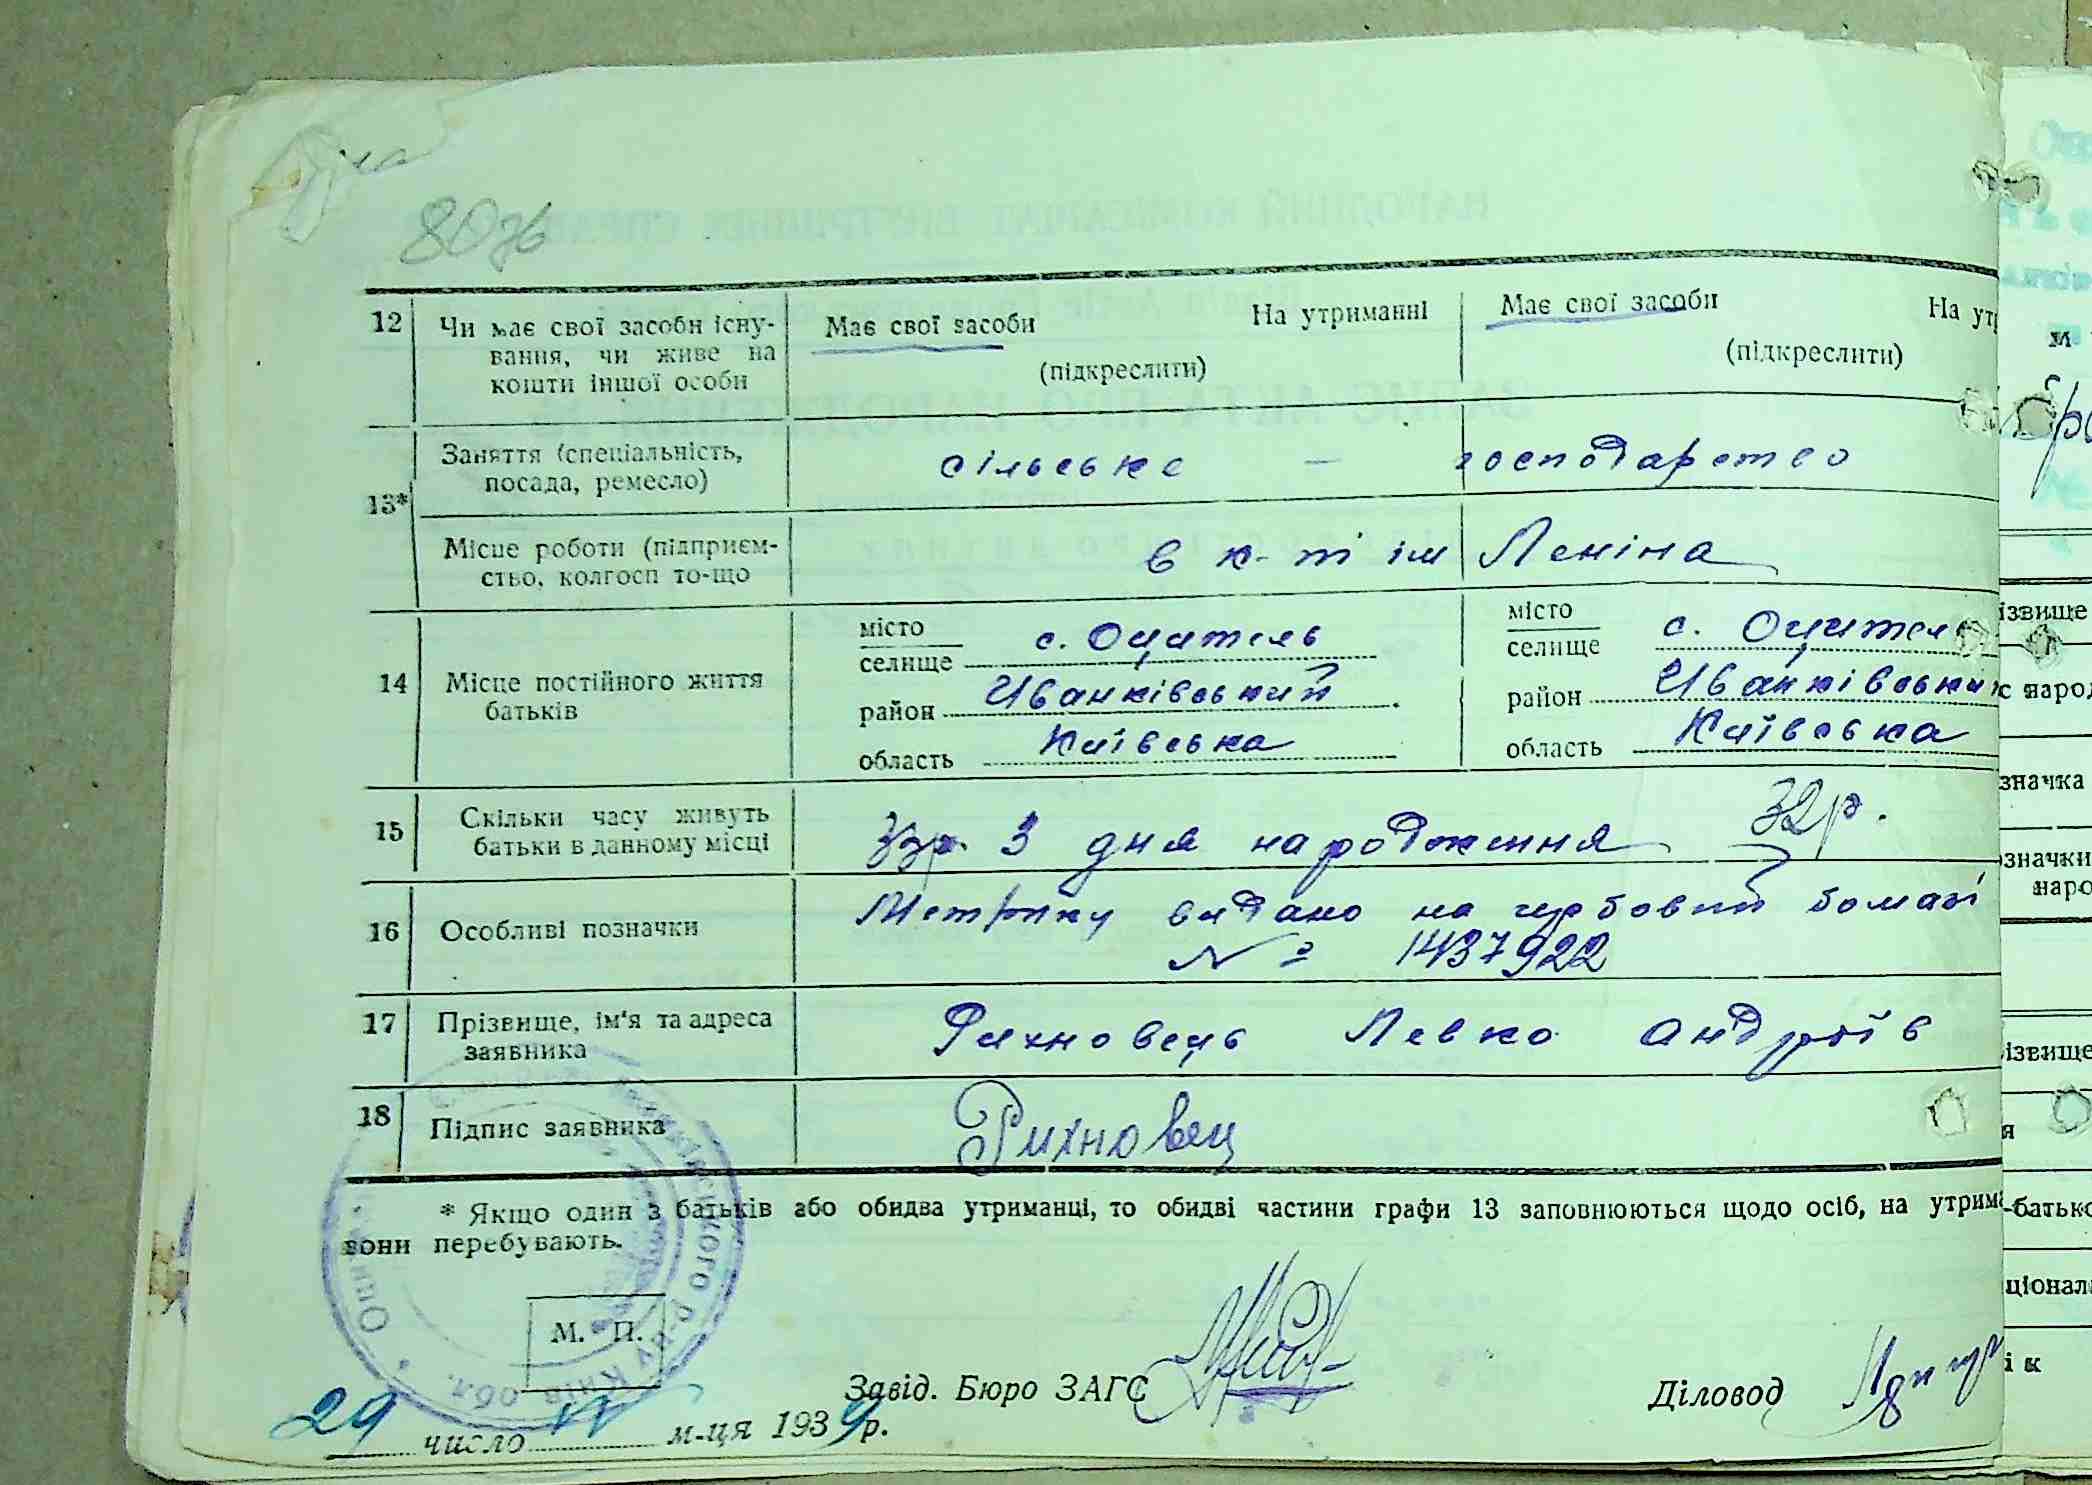 80 зв
12 Чи має свої засоби існу-
вання, чи живе на
кошти іншої особи
Має свої засоби На утриманні
(підкреслити)
Має свої засоби На утр
(підкреслити)
13*
Заняття (спеціальність,
посада, ремесло)
сільське – господарство
Місце роботи (підприєм-
ство, колгосп то-що
в к-ті ім Леніна
14 Місце постійного життя
батьків
місто
селище с. Оцитель
район Иванківський
область Київська
місто
селище с. Оцитель
район Иванківський
область Київська
15 Скільки часу живуть
батьки в данному місці
З дня народження 32р.
16 Особливі позначки
Метрику видано на гербовий бомазі
№ 1437922
17 Прізвище, ім'я та адреса
заявника
Рихновець Левко Андріїв
18 Підпис заявника
Рихновец
* Якщо один з батьків або обидва утриманці, то обидві частини графи 13 заповнюються щодо осіб, на утрим
вони перебувають.
М. П.
Завід. Бюро ЗАГС
Діловод
29 число IV м-ця 1939 р.
різвище
с народ
значка
означки
наро
різвище
я
-батько
ціонал
ік